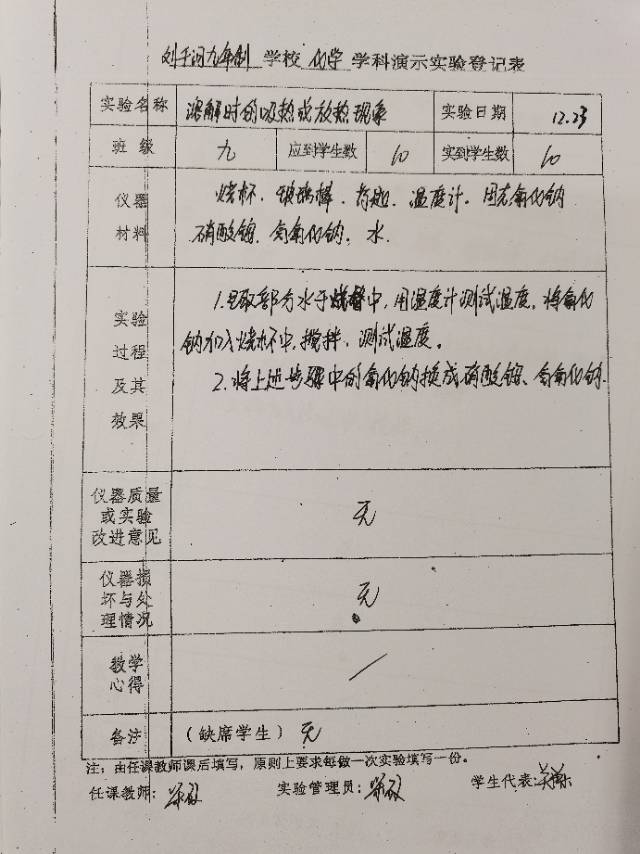 九年制 学校 化学 学科演示实验登记表
实验名称 溶解时的吸热或放热现象 实验日期 12.23
班级 九 应到学生数 10 实到学生数 10
仪器材料 烧杯、玻璃棒、药匙、温度计、固态氯化钠
硝酸铵、氢氧化钠、水
实验过程及其效果
1.取部分水于烧杯中,用温度计测试温度,将氯化
钠加入烧杯中,搅拌、测试温度。
2.将上述步骤中的氯化钠换成硝酸铵、氢氧化钠.
仪器质量或实验改进意见 无
仪器损坏与处理情况 无
教学心得 /
备注 (缺席学生)无
注:由任课教师课后填写,原则上要求每做一次实验填写一份。
任课教师: 实验管理员: 学生代表: